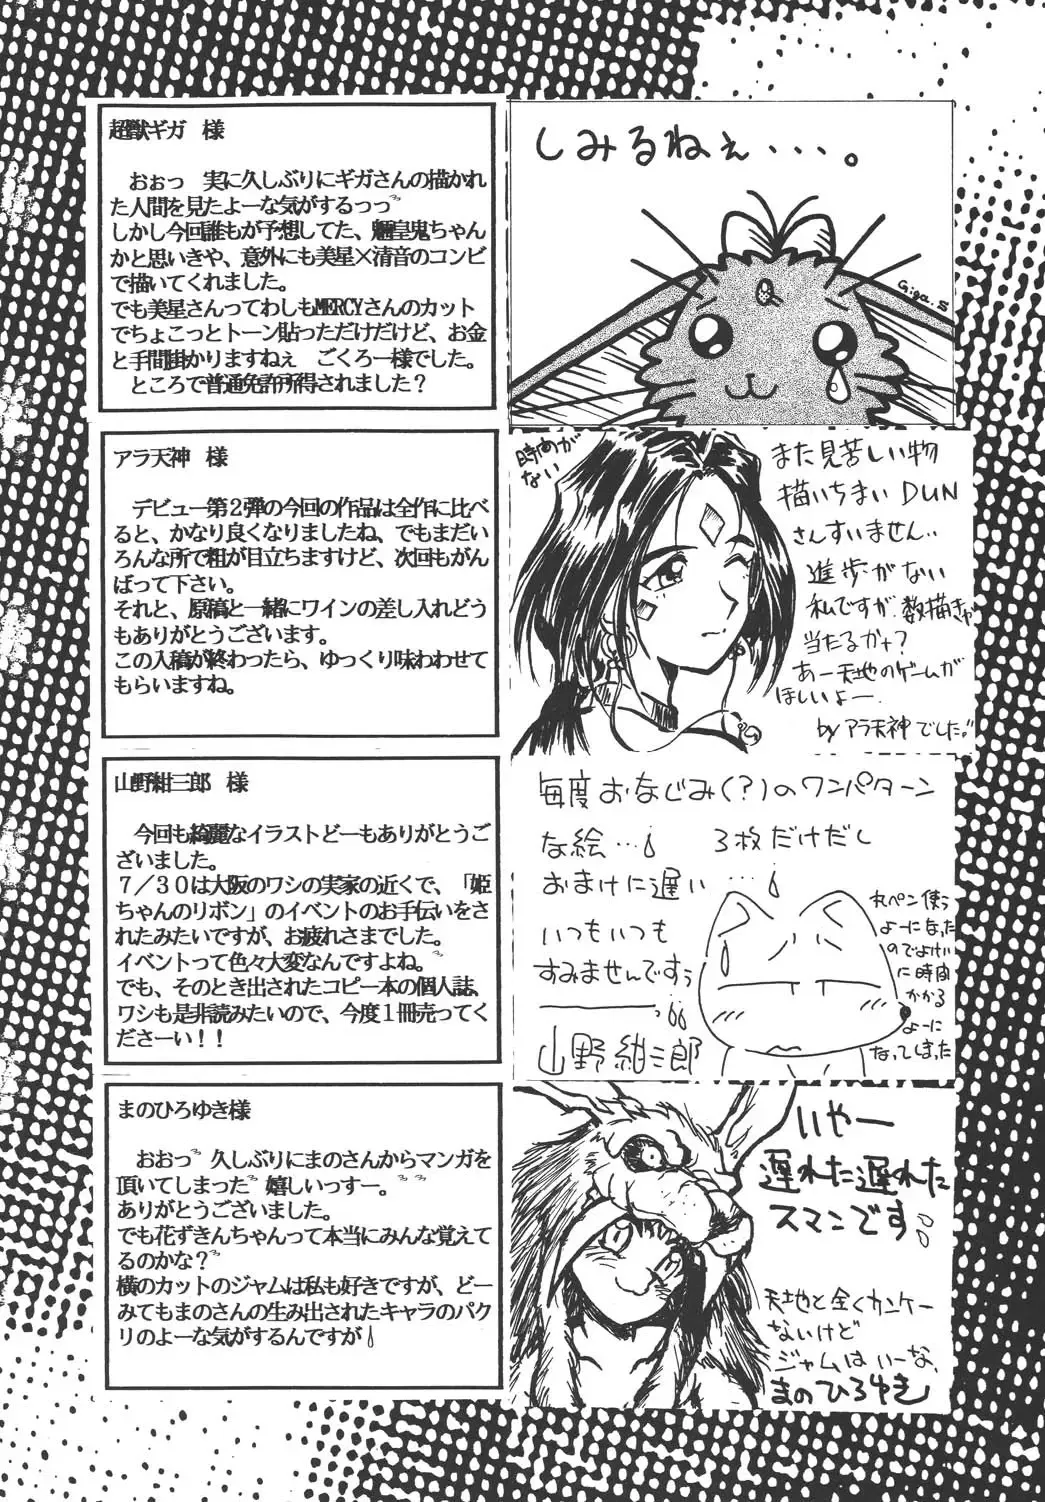 超獣ギガ　様
おぉっ　実に久しぶりにギガさんの描かれ
た人間を見たよーな気がするっっ
しかし今回誰もが予想してた、魎皇鬼ちゃん
かと思いきや、意外にも美星×清音のコンビ
で描いてくれました。
でも美星さんってわしもMERCYさんのカット
でちょこっとトーン貼っただけだけど、お金
と手間掛かりますねぇ　ごくろー様でした。
ところで普通免許所得されました？
しみるねぇ・・・。
Giga.S
アラ天神　様
デビュー第２弾の今回の作品は全作に比べ
ると、かなり良くなりましたね、でもまだい
ろんな所で粗が目立ちますけど、次回もがん
ばって下さい。
それと、原稿と一緒にワインの差し入れどう
もありがとうございます。
この入稿が終わったら、ゆっくり味わわせて
もらいますね。
時間が
ない
また見苦しい物
描いちまい DUN
さんすいません‥
進歩がない
私ですが、数描きゃ
当たるか＋？
あー天地のゲームが
ほしいよー
by アラ天神でした。"
山野紺三郎　様
今回も綺麗なイラストどーもありがとうご
ざいました。
７／３０は大阪のワシの実家の近くで、「姫
ちゃんのリボン」のイベントのお手伝いをさ
れたみたいですが、お疲れさまでした。
イベントって色々大変なんですよね。
でも、そのとき出されたコピー本の個人誌、
ワシも是非読みたいので、今度１冊売ってく
ださーい！！
毎度おなじみ（？）のワンパターン
な絵…　３枚だけだし
おまけに遅い…
いつもいつも
すみませんですぅ
山野紺三郎
丸ペン使う
よーになった
のでよけい
に時間
かかる
よーに
なってしまった
まのひろゆき様
おおっ　久しぶりにまのさんからマンガを
頂いてしまった　嬉しいっすー。
ありがとうございました。
でも花ずきんちゃんって本当にみんな覚えて
るのかな？
横のカットのジャムは私も好きですが、どー
みてもまのさんの生み出されたキャラのパク
リのよーな気がするんですが
いやー
遅れた遅れた
スマンです
天地と全くカンケー
ないけど
ジャムはいーな、
まのひろゆき